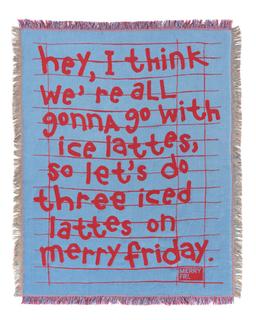 hey, I think
we're all
gonna go with
ice lattes,
so let's do
three iced
lattes on
merry friday.
MERRY
FRI.